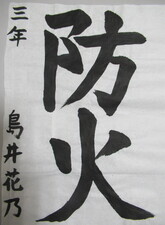 防火
三年
島井花乃